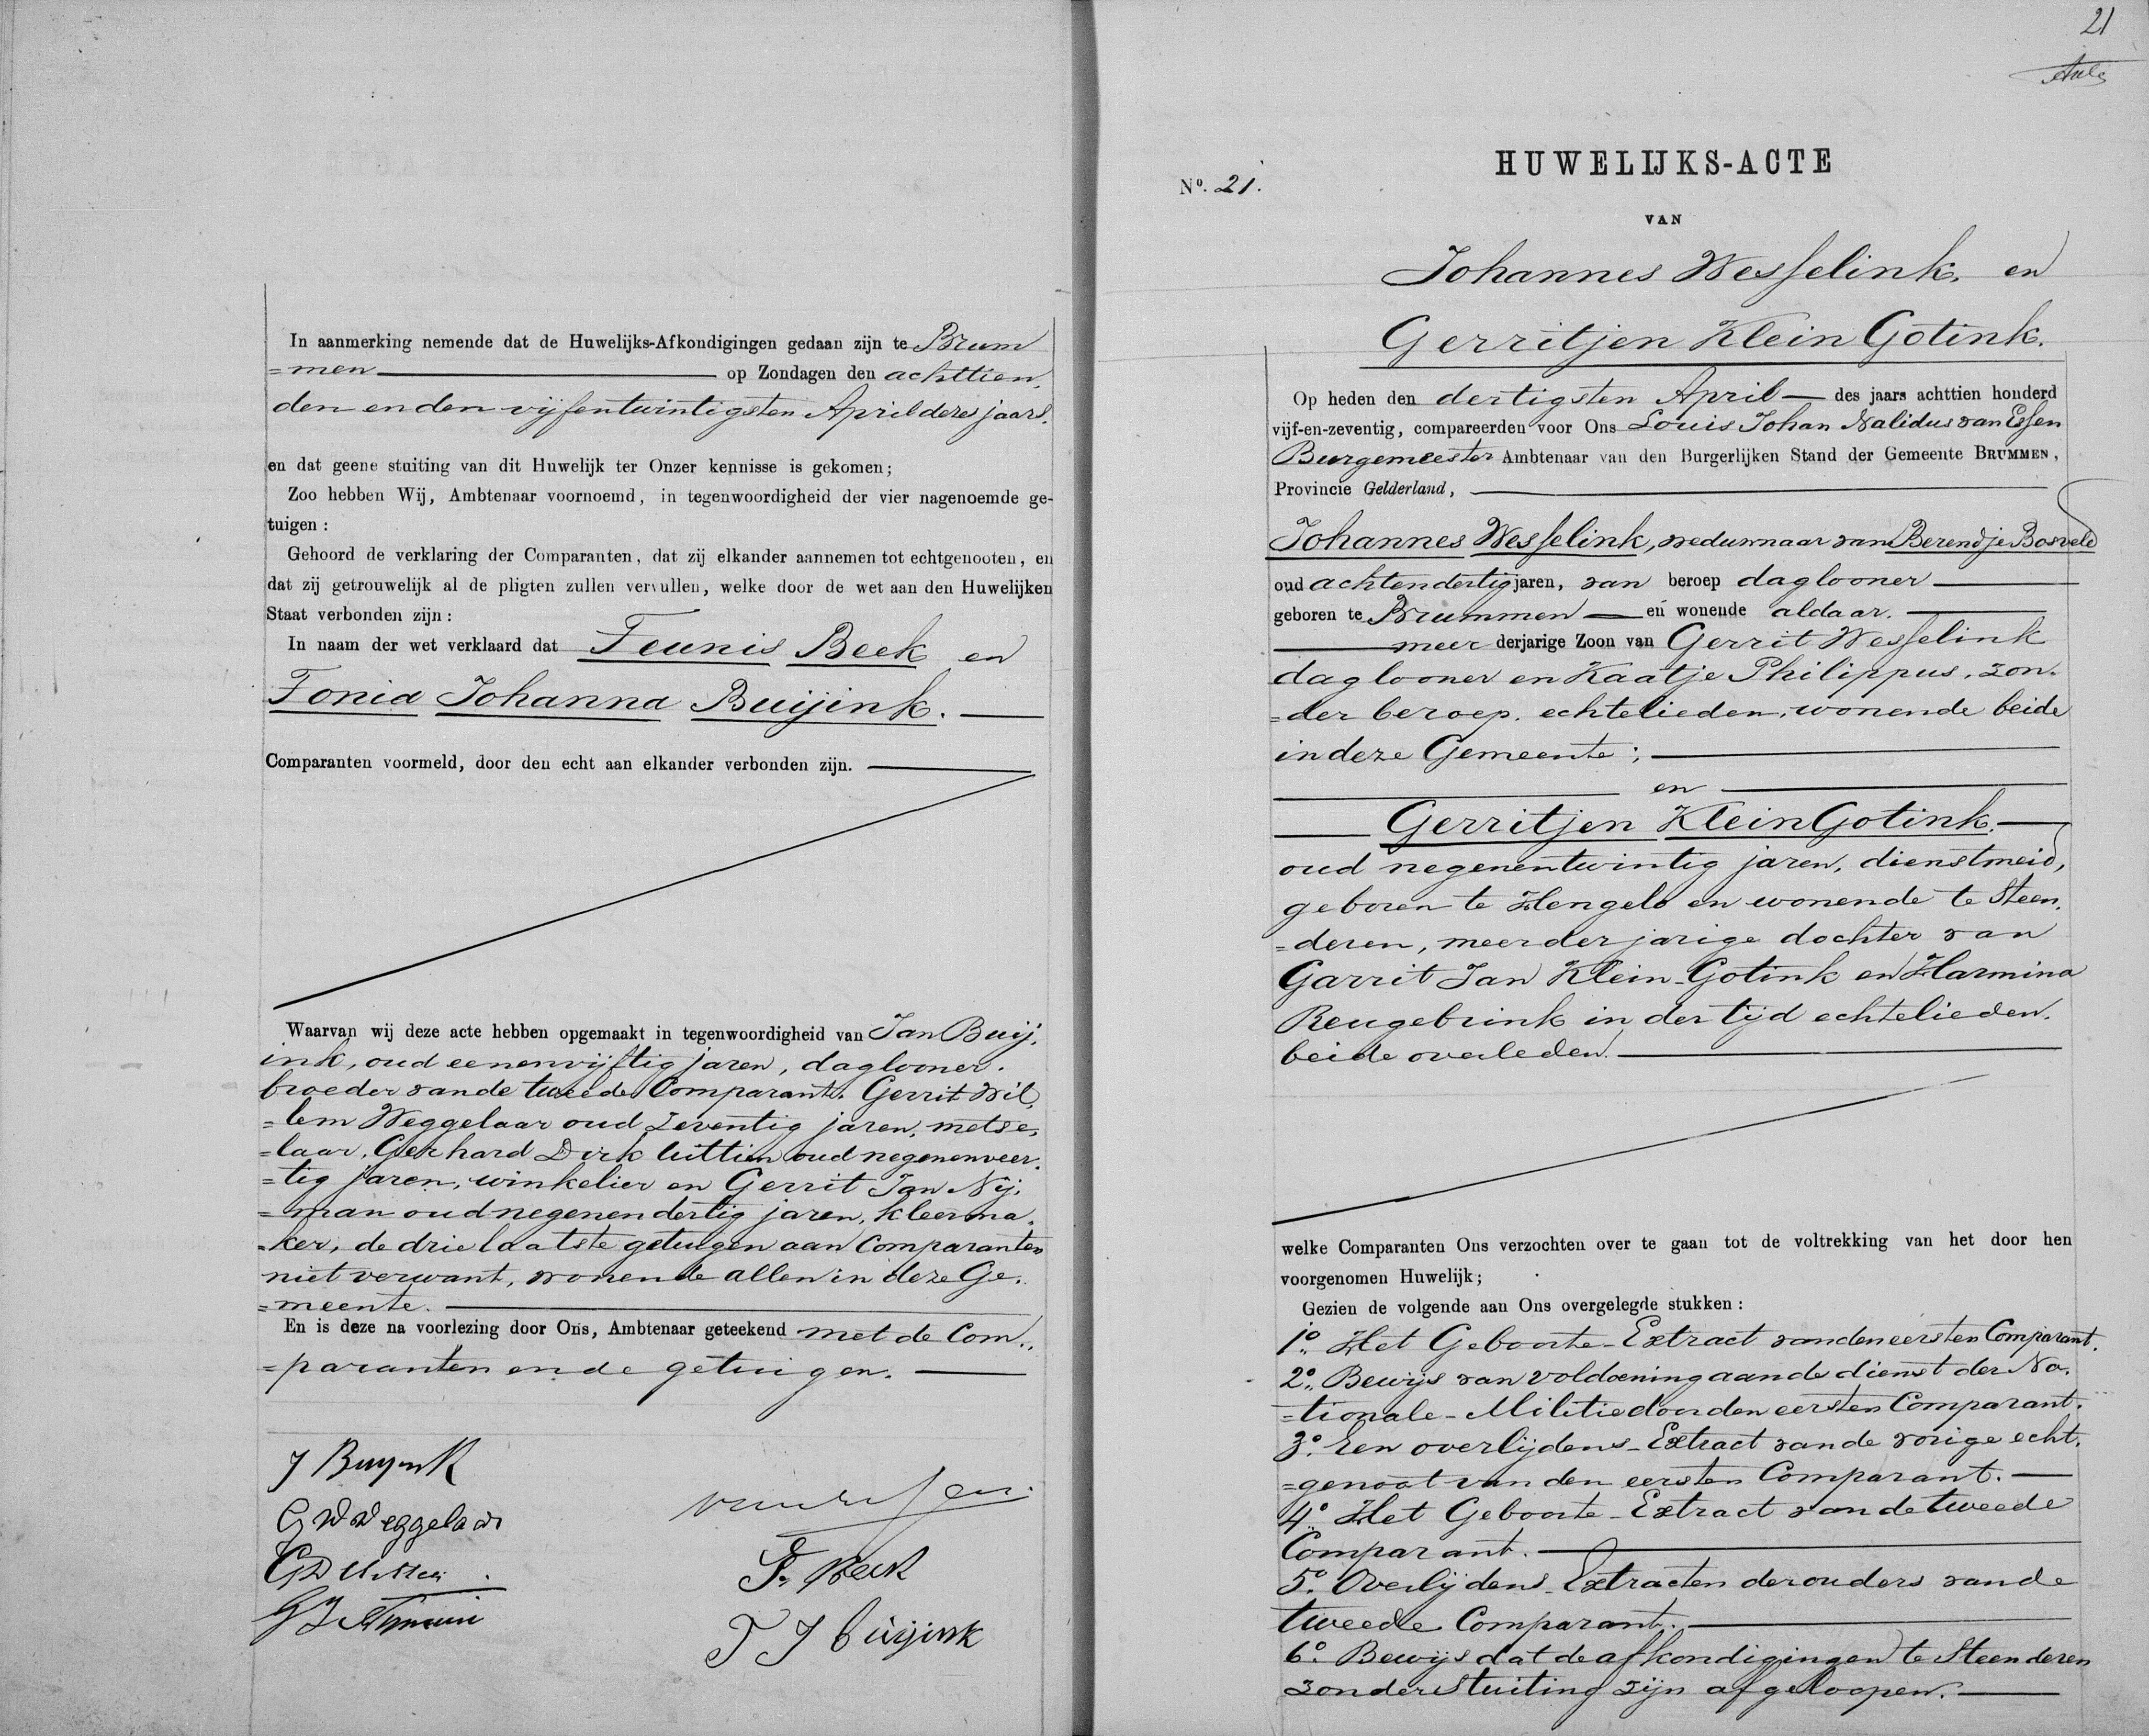 In aanmerking nemende dat de Huwelijks-Afkondigingen gedaan zijn te Brum
=men op Zondagen den achttien.
den en den vijfentwintigsten April dezes jaars.
en dat geene stuiting van dit Huwelijk ter Onzer kennisse is gekomen;
Zoo hebben Wij, Ambtenaar voornoemd, in tegenwoordigheid der vier nagenoemde ge-
tuigen:
Gehoord de verklaring der Comparanten, dat zij elkander aannemen tot echtgenooten, en
dat zij getrouwelijk al de pligten zullen vervullen, welke door de wet aan den Huwelijken
Staat verbonden zijn:
In naam der wet verklaard dat Teunis Beek en
Tonia Johanna Buijink.
Comparanten voormeld, door den echt aan elkander verbonden zijn.
Waarvan wij deze acte hebben opgemaakt in tegenwoordigheid van Jan Buij.
ink, oud eenenvijftig jaren, daglooner.
broeder van de tweede Comparant. Gerrit Wil.
=lem Weggelaar oud Zeventig jaren, metse.
=laar, Gerhard Dirk Uittien oud negenenveer.
=tig jaren, winkelier en Gerrit Jan Nij.
=man oud negenendertig jaren, kleerma.
=ker, de drie laatste getuigen aan Comparanten
niet verwant, wonende allen in deze Ge.
=meente.
En is deze na voorlezing door Ons, Ambtenaar geteekend met de Com..
=paranten en de getuigen.
J Buyink
G W Weggelaar
GD Uittien
G J
van Essen
T. Beek
T J Buijink
21
HUWELIJKS-ACTE
No. 21.
VAN
Johannes Wesselink, en
Gerritjen Klein Gotink.
Op heden den dertigsten April des jaars achttien honderd
vijf-en-zeventig, compareerden voor Ons Louis Johan Nalidus van Essen
Burgemeester Ambtenaar van den Burgerlijken Stand der Gemeente BRUMMEN,
Provincie Gelderland,
Johannes Wesselink, weduwnaar van Berendje Bosveld
oud achtendertig jaren, van beroep daglooner
geboren te Brummen en wonende aldaar.
meer derjarige Zoon van Gerrit Wesselink
daglooner en Kaatje Philippus, zon.
=der beroep. echtelieden, wonende beide
in deze Gemeente;
en
Gerritjen Klein Gotink.
oud negenentwintig jaren, dienstmeid,
geboren te Hengelo en wonende te Steen.
=deren, meerderjarige dochter van
Garrit Jan Klein-Gotink en Harmina
Reugebrink in der tijd echtelieden.
beide overleden.
welke Comparanten Ons verzochten over te gaan tot de voltrekking van het door hen
voorgenomen Huwelijk;
Gezien de volgende aan Ons overgelegde stukken:
1o. Het Geboorte-Extract van den eersten Comparant.
2o. Bewijs van voldoening aan de dienst der Na.
=tionale-Militie door den eersten Comparant.
3o. Een overlijdens-Extract van de vorige echt.
=genoot van den eersten Comparant.
4o. Het Geboorte-Extract van de tweede
Comparant.
5o. Overlijdens-Extracten der ouders van de
tweede Comparant.
6o. Bewijs dat de afkondigingen te Steenderen
zonder Stuiting zijn afgeloopen.